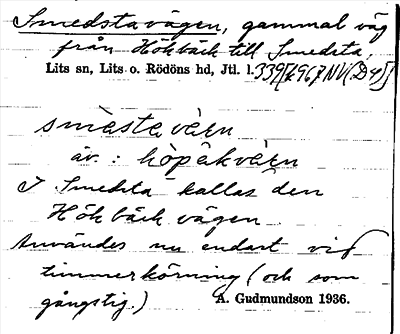 Smedstavägen, gammal väg
från Hökbäck till Smedsta,
Lits sn, Lits o. Rödöns hd, Jtl. l. 339[
smæstavärn
äv.: höpäkvärn
I Smedsta kallas den
Hökbäckvägen
Användes nu endast vid
timmerkörning (och som
gångstig.) A. Gudmundson 1936.